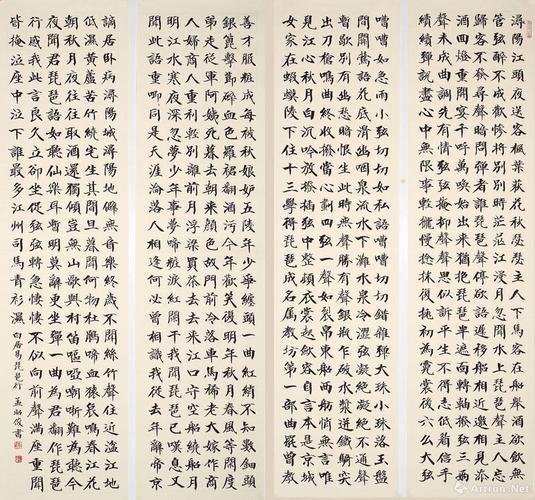 潯陽江頭夜送客楓葉荻花秋瑟瑟主人下馬客在船舉酒欲飲無
管弦醉不成歡慘將別別時茫茫江浸月忽聞水上琵琶聲主人忘
歸客不發尋聲暗問彈者誰琵琶聲停欲語遲移船相近邀相見添
酒回燈重開宴千呼萬喚始出來猶抱琵琶半遮面轉軸撥弦三兩
聲未成曲調先有情弦弦掩抑聲聲思似訴平生不得志低眉信手
續續彈說盡心中無限事輕攏慢撚抹復挑初為霓裳後六么大弦
嘈嘈如急雨小弦切切如私語嘈嘈切切錯雜彈大珠小珠落玉盤
間關鶯語花底滑幽咽泉流水下灘水泉冷澀弦凝絕凝絕不通聲
暫歇別有幽愁暗恨生此時無聲勝有聲銀瓶乍破水漿迸鐵騎突
出刀槍鳴曲終收撥當心劃四弦一聲如裂帛東船西舫悄無言唯
見江心秋月白沉吟放撥插弦中整頓衣裳起斂容自言本是京城
女家在蝦蟆陵下住十三學得琵琶成名屬教坊第一部曲罷曾教
善才服粧成每被秋娘妒五陵年少爭纏頭一曲紅綃不知數鈿頭
銀篦擊節碎血色羅裙翻酒污今年歡笑復明年秋月春風等閑度
弟走從軍阿姨死暮去朝來顏色故門前冷落車馬稀老大嫁作商
人婦商人重利輕別離前月浮梁買茶去去來江口守空船繞船月
明江水寒夜深忽夢少年事夢啼粧淚紅闌干我聞琵琶已嘆息又
聞此語重唧唧同是天涯淪落人相逢何必曾相識我從去年辭帝京
謫居卧病潯陽城潯陽地僻無音樂終歲不聞絲竹聲住近湓江地
低濕黃蘆苦竹繞宅生其間旦暮聞何物杜鵑啼血猿哀鳴春江花
朝秋月夜往往取酒還獨傾豈無山歌與村笛嘔啞嘲哳難為聽今
夜聞君琵琶語如聽仙樂耳暫明莫辭更坐彈一曲為君翻作琵琶
行感我此言良久立卻坐促弦弦轉急悽悽不似向前聲滿座重聞
皆掩泣座中泣下誰最多江州司馬青衫濕 白居易琵琶行 孟昭俊書
Artron.Net